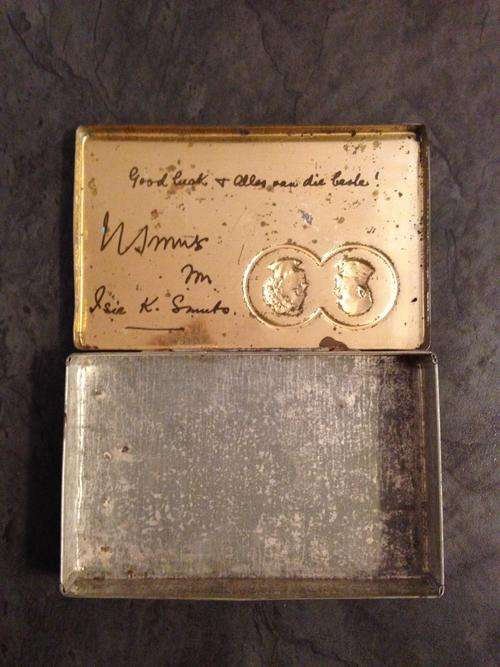 Good luck & Alles van die beste!
JC Smuts
en
Isie K. Smuts.